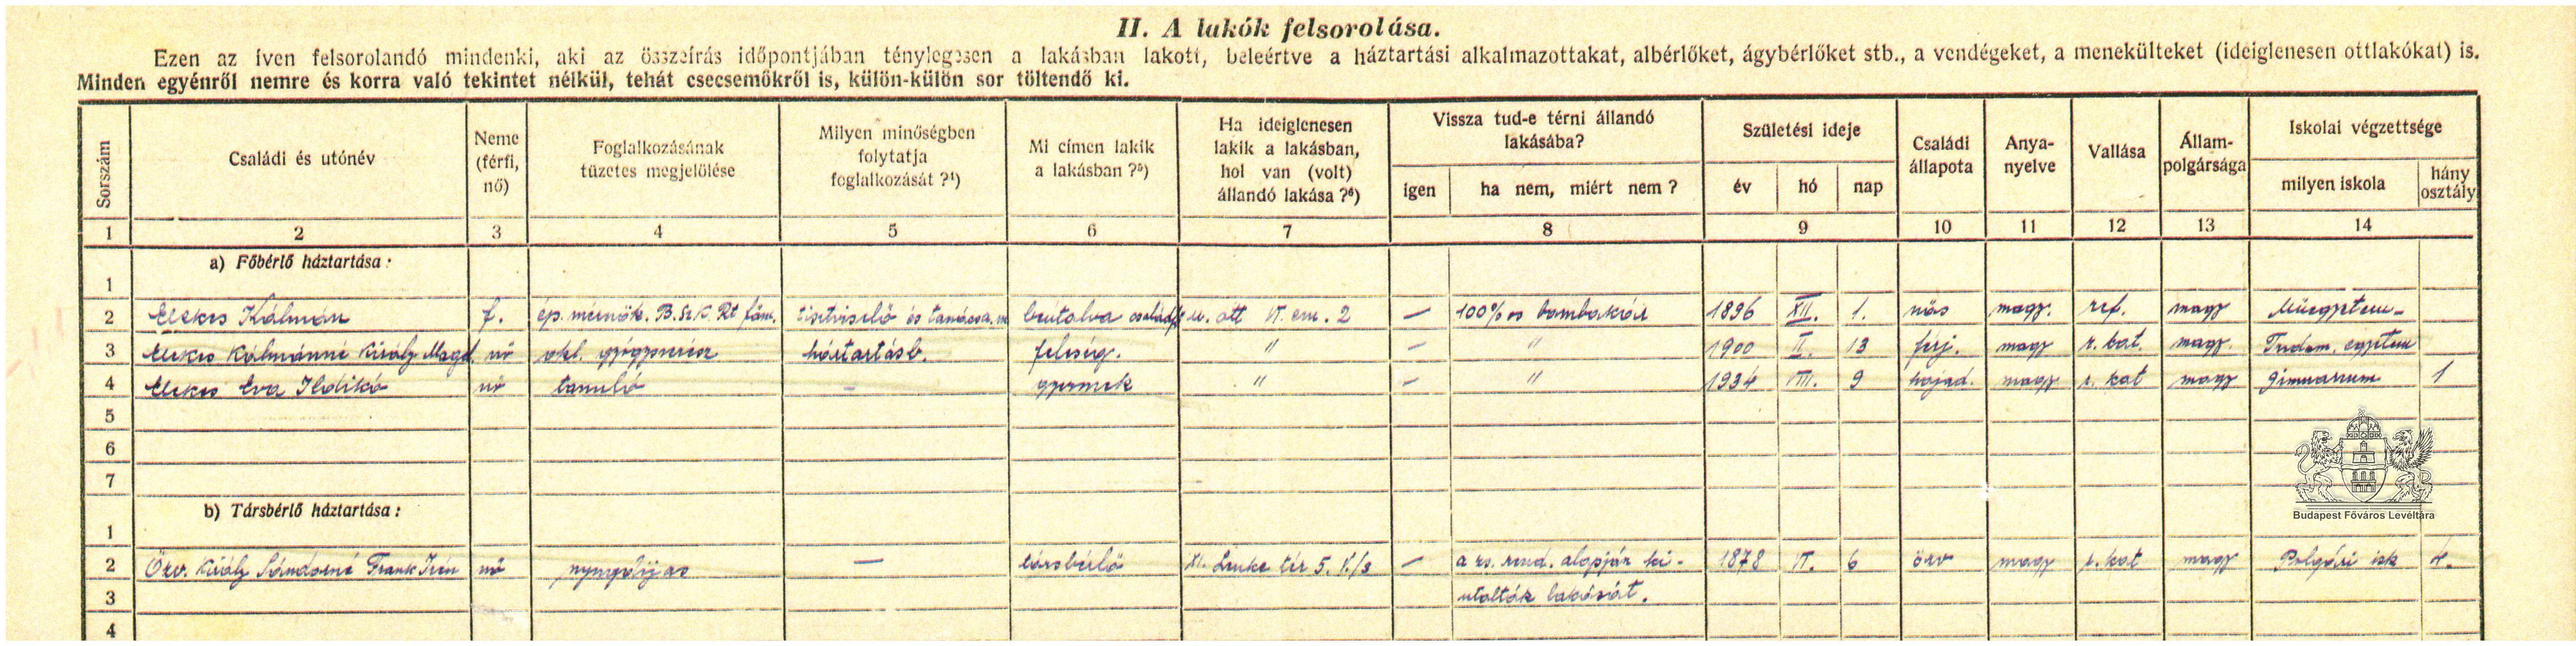 II. A lakók felsorolása.
Ezen az íven felsorolandó mindenki, aki az összeírás időpontjában ténylegesen a lakásban lakott, beleértve a háztartási alkalmazottakat, albérlőket, ágybérlőket stb., a vendégeket, a menekülteket (ideiglenesen ottlakókat) is.
Minden egyénről nemre és korra való tekintet nélkül, tehát csecsemőkről is, külön-külön sor töltendő ki.
Sorszám
Családi és utónév
Neme (férfi, nő)
Foglalkozásának tüzetes megjelölése
Milyen minőségben folytatja foglalkozását ?⁴)
Mi címen lakik a lakásban ?⁵)
Ha ideiglenesen lakik a lakásban, hol van (volt) állandó lakása ?⁶)
Vissza tud-e térni állandó lakásába?
igen
ha nem, miért nem ?
Születési ideje
év hó nap
Családi állapota
Anya-nyelve
Vallása
Állam-polgársága
Iskolai végzettsége
milyen iskola
hány osztály
1 2 3 4 5 6 7 8 9 10 11 12 13 14
a) Főbérlő háztartása :
1
2 Elekes Kálmán f. ép. mérnök. B.Sz.K. Rt tisztviselő és beutalva ott VI. em. 2 — 100%os bombakár 1896 XII. 1. nős magy. ref. magy Műegyetem —
3 Elekes Kálmánné Király Magd. nő okl. gyógyszerész háztartásb. feleség. " — " 1900 II. 13 férj. magy r. kat. magy. Tudom. egyetem
4 Elekes Éva Ildikó nő tanuló — gyermek " — " 1934 VII. 9 hajad. magy r. kat magy gimnázium 1
5
6
7
b) Társbérlő háztartása :
1
2 Özv. Király Sándorné Frank Irén nő nyugdíjas — társbérlő XI. Lenke tér 5. — a rend. alapján ki- 1878 VI. 6 özv magy r. kat magy Polgári isk 4.
3 utalták lakását.
4
Budapest Főváros Levéltára